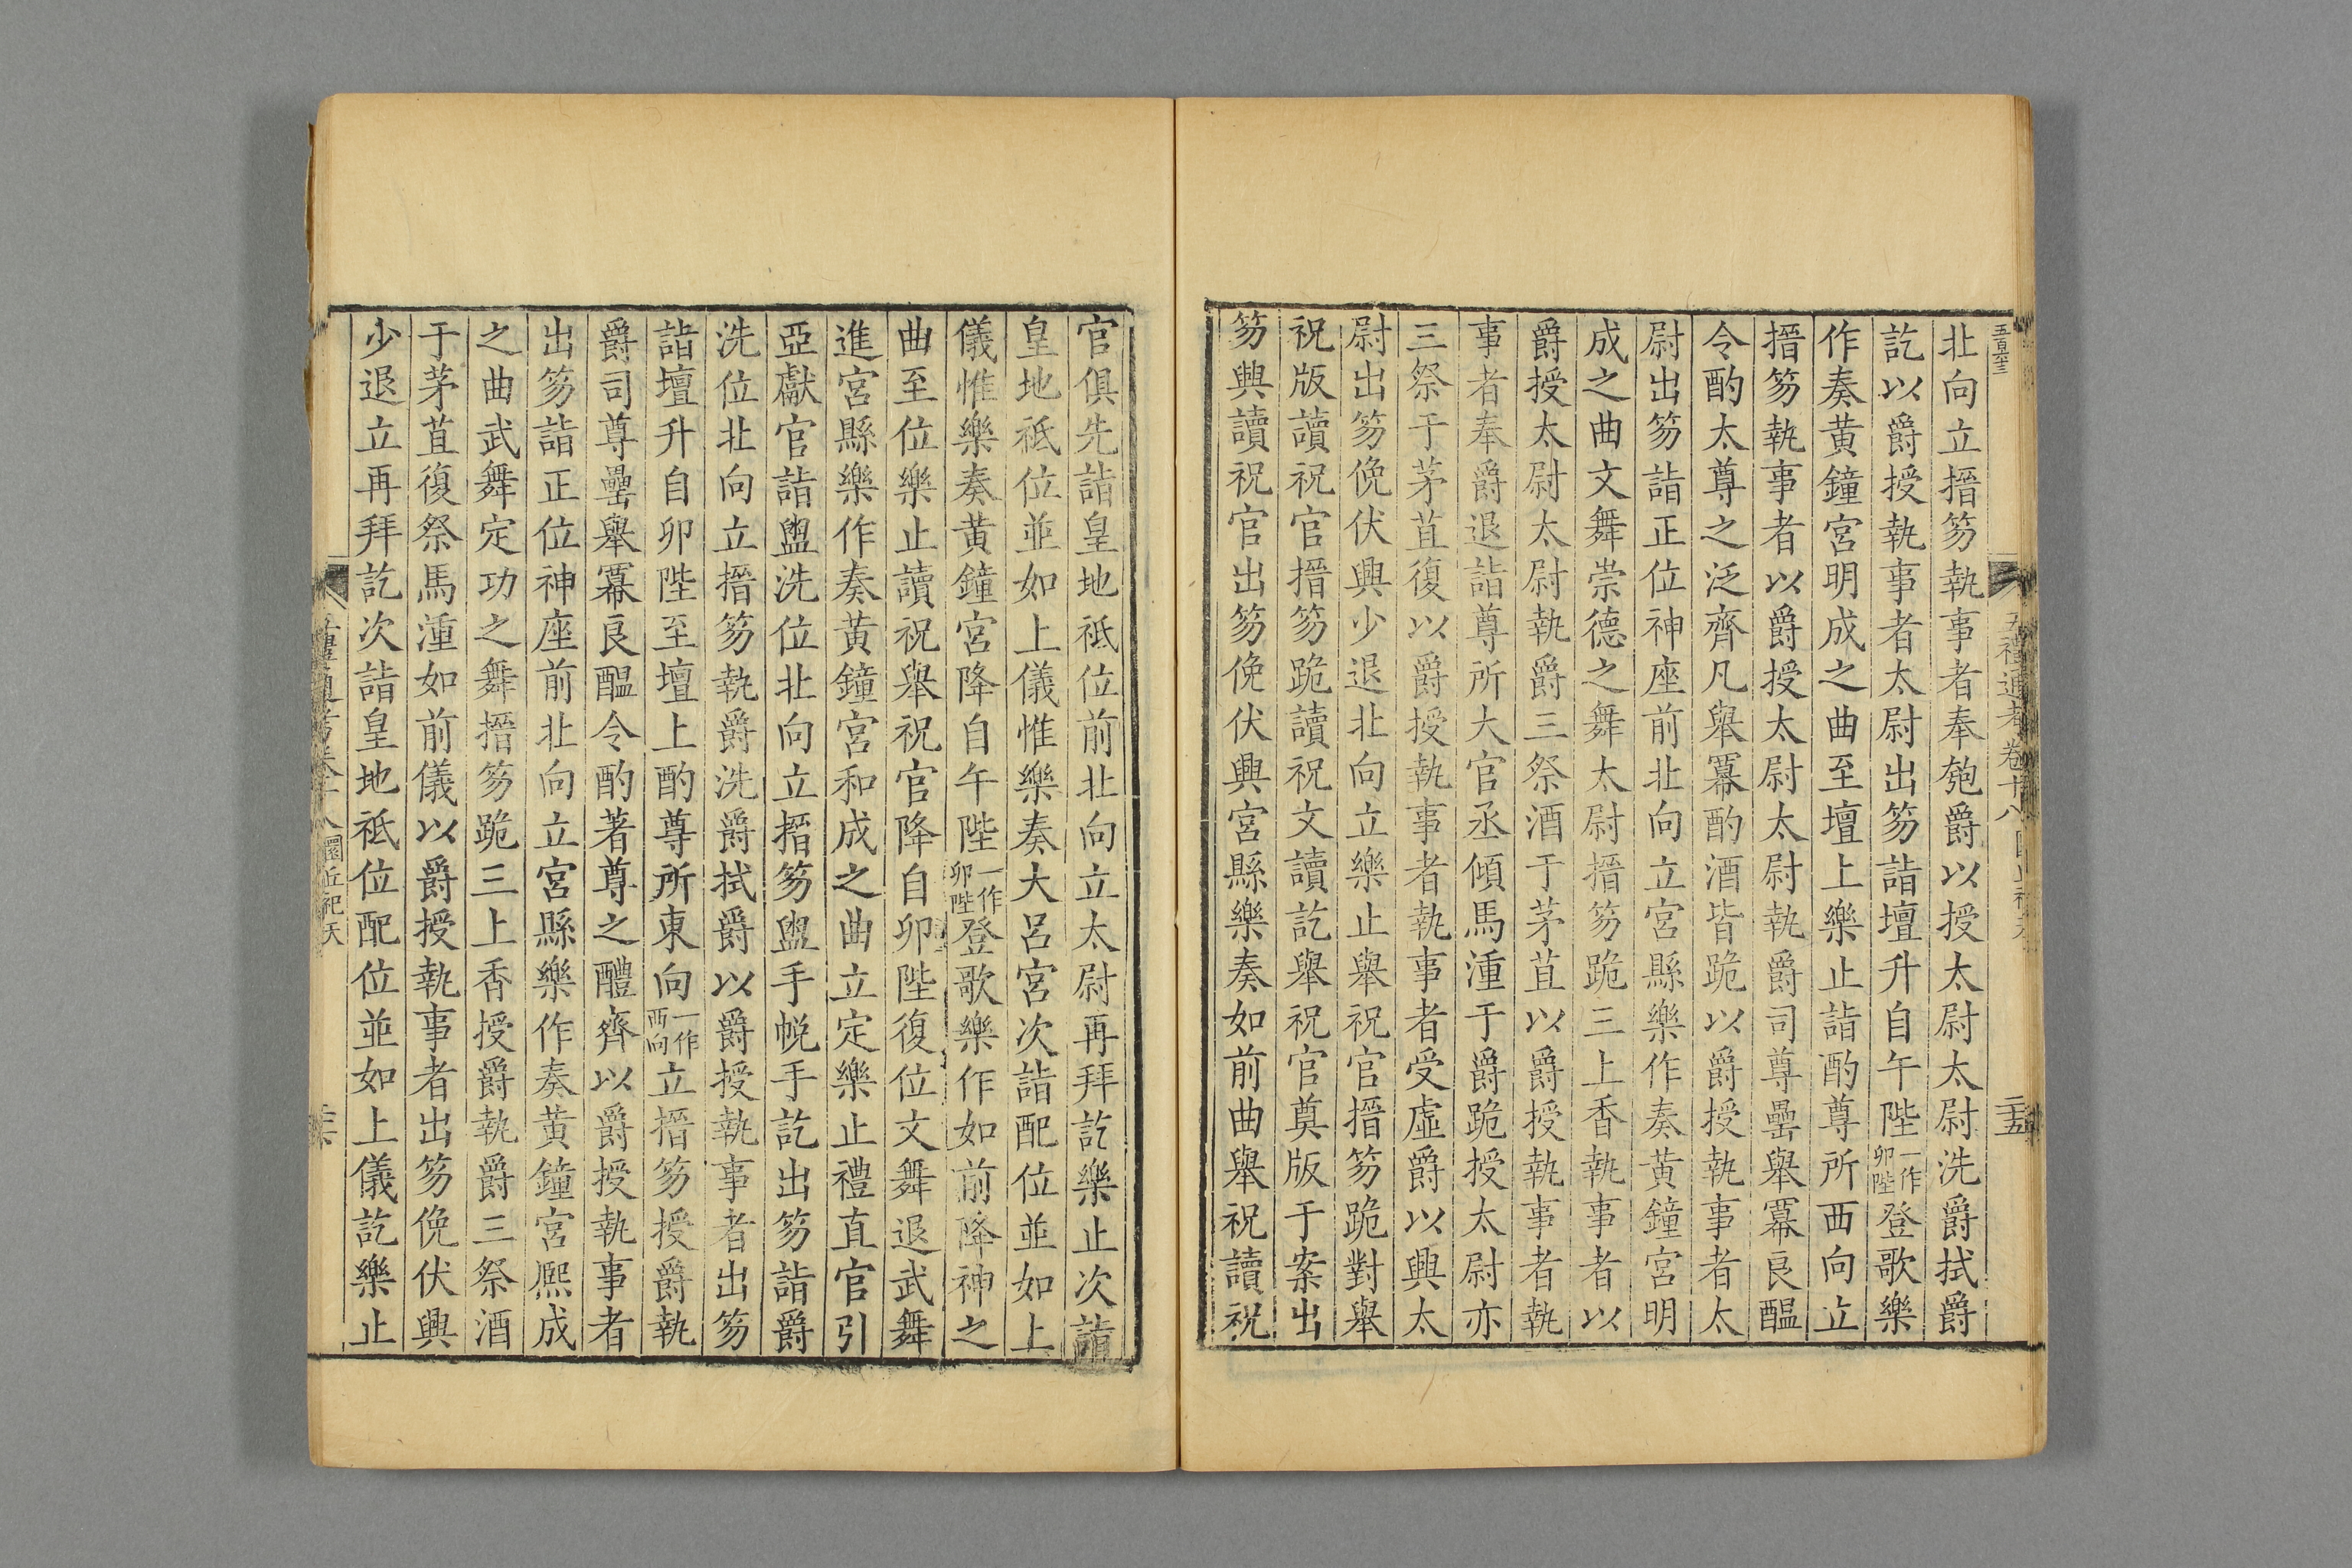 北向立搢笏執事者奉匏爵以授太尉太尉洗爵拭爵
訖以爵授執事者太尉出笏詣壇升自午陛一作卯陛登歌樂
作奏黃鐘宮明成之曲至壇上樂止詣酌尊所西向立
搢笏執事者以爵授太尉太尉執爵司尊罍舉羃良醞
令酌太尊之泛齊凡舉羃酌酒皆跪以爵授執事者太
尉出笏詣正位神座前北向立宮縣樂作奏黃鐘宮明
成之曲文舞崇德之舞太尉搢笏跪三上香執事者以
爵授太尉太尉執爵三祭酒于茅苴以爵授執事者執
事者奉爵退詣尊所大官丞傾馬湩于爵跪授太尉亦
三祭于茅苴復以爵授執事者執事者受虛爵以興太
尉出笏俛伏興少退北向立樂止舉祝官搢笏跪對舉
祝版讀祝官搢笏跪讀祝文讀訖舉祝官奠版于案出
笏興讀祝官出笏俛伏興宮縣樂奏如前曲舉祝讀祝
五禮通考卷十八
二十五
官俱先詣皇地祇位前北向立太尉再拜訖樂止次詣
皇地祇位並如上儀惟樂奏大呂宮次詣配位並如上
儀惟樂奏黃鐘宮降自午陛一作卯陛登歌樂作如前降神之
曲至位樂止讀祝舉祝官降自卯陛復位文舞退武舞
進宮縣樂作奏黃鐘宮和成之曲立定樂止禮直官引
亞獻官詣盥洗位北向立搢笏盥手帨手訖出笏詣爵
洗位北向立搢笏執爵洗爵拭爵以爵授執事者出笏
詣壇升自卯陛至壇上酌尊所東向一作西向立搢笏授爵執
爵司尊罍舉羃良醞令酌著尊之醴齊以爵授執事者
出笏詣正位神座前北向立宮縣樂作奏黃鐘宮熈成
之曲武舞定功之舞搢笏跪三上香授爵執爵三祭酒
于茅苴復祭馬湩如前儀以爵授執事者出笏俛伏興
少退立再拜訖次詣皇地祇位配位並如上儀訖樂止
圜丘祀天